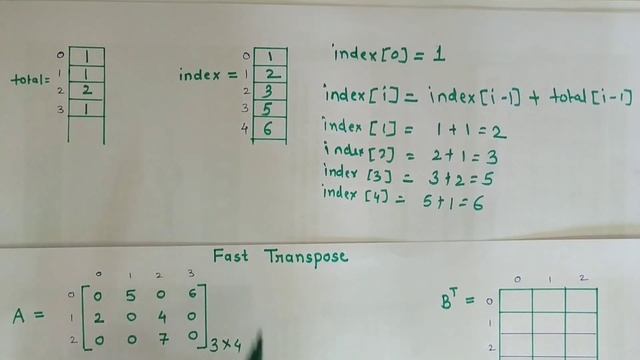 0 1
total= 1 1
2 2
3 1
0 1
index = 1 2
2 3
3 5
4 6
index[0] = 1
index[i] = index[i-1] + total[i-1]
index [1] = 1+1=2
index [2] = 2+1=3
index [3] = 3+2=5
index [4] = 5+1=6
Fast Transpose
0 1 2 3
0 0 5 0 6
A = 1 2 0 4 0
2 0 0 7 0 3×4
0 1 2
Bᵀ = 0
1
2